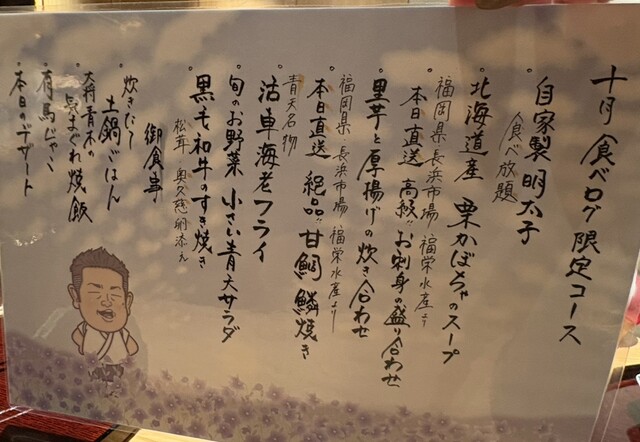 十月 食べログ 限定コース
自家製 明太子
食べ放題
北海道産 栗かぼちゃのスープ
福岡県 長浜市場 福栄水産より
本日直送 高級"お刺身の盛り合わせ
里芋と厚揚げの炊き合わせ
福岡県 長浜市場 福栄水産より
本日直送 絶品"甘鯛 鱗焼き
青天名物
活車海老フライ
旬のお野菜 小さい青天サラダ
黒毛和牛のすき焼き
松茸 奥久慈卵添え
御食事
炊きたて
土鍋ごはん
大将青木の
気まぐれ焼飯
有馬じゃこ
本日のデザート